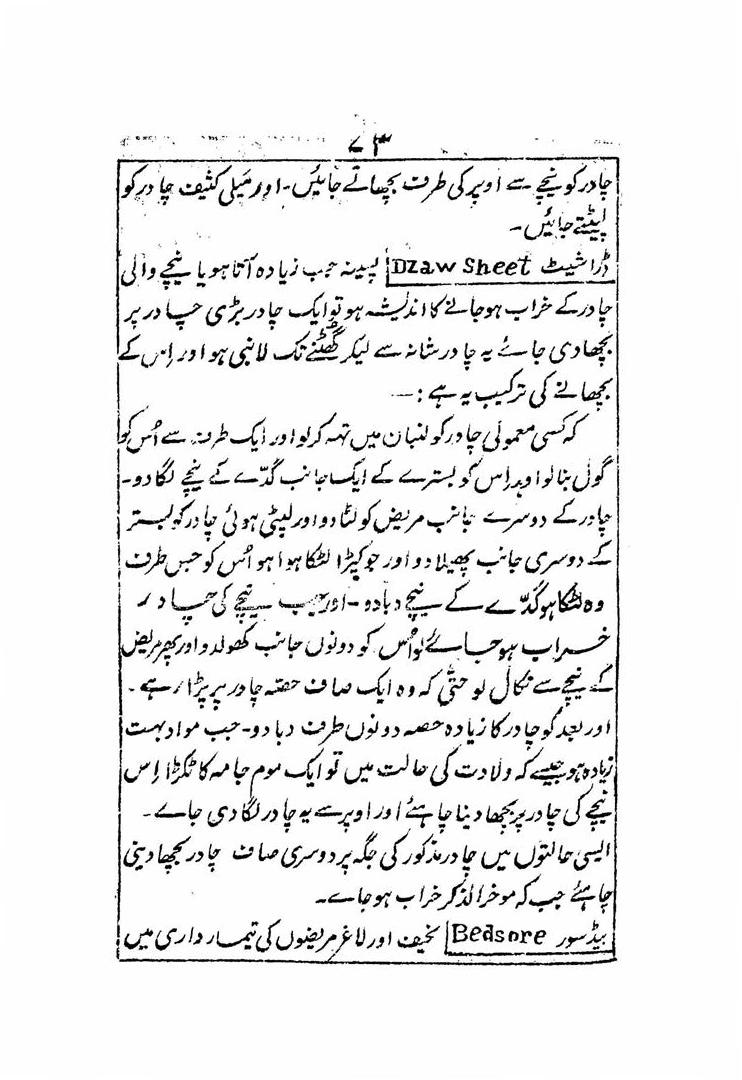 ۷۳
چادر کو نیچے سے اوپر کی طرف بچھاتے جائیں۔ اور میلی کثیف چادر کو
لپیٹتے جائیں۔
ڈراشیٹ Dzaw Sheet پسینہ جب زیادہ آتا ہو یا نیچے والی
چادر کے خراب ہو جانے کا اندیشہ ہو تو ایک چادر بڑی چادر پر
بچھا دی جائے یہ چادر شانہ سے لیکر گھٹنے تک لانبی ہو اور اِس کے
بچھانے کی ترکیب یہ ہے :—
کہ کسی معمولی چادر کو لنبان میں تہہ کر لو اور ایک طرف سے اُس کو
گول بنا لو اور اِس کو بسترے کے ایک جانب گدّے کے نیچے لگا دو۔
چادر کے دوسرے جانب مریض کو لٹا دو اور لپٹی ہوئی چادر کو بستر
کے دوسری جانب پھیلا دو اور جو کپڑا لٹکا ہوا ہو اُس کو جس طرف
وہ لٹکا ہو گدّے کے نیچے دبا دو۔ اور جب نیچے کی چادر
خراب ہو جائے تو اُس کو دونوں جانب کھولدو اور پھر مریض
کے نیچے سے نکال لو حتّٰی کہ وہ ایک صاف حصّہ چادر پر پڑا رہے۔
اور بعد کو چادر کا زیادہ حصہ دونوں طرف دبا دو۔ جب مواد بہت
زیادہ ہو جیسے کہ ولادت کی حالت میں تو ایک موم جامہ کا ٹکڑا اِس
نیچے کی چادر پر بچھا دینا چاہئے اور اوپر سے یہ چادر لگا دی جاے۔
ایسی حالتوں میں چادر مذکور کی جگہ پر دوسری صاف چادر بچھا دینی
چاہئے جب کہ موخرالذکر خراب ہو جاے۔
بیڈسور Bedsore نحیف اور لاغر مریضوں کی تیمارداری میں